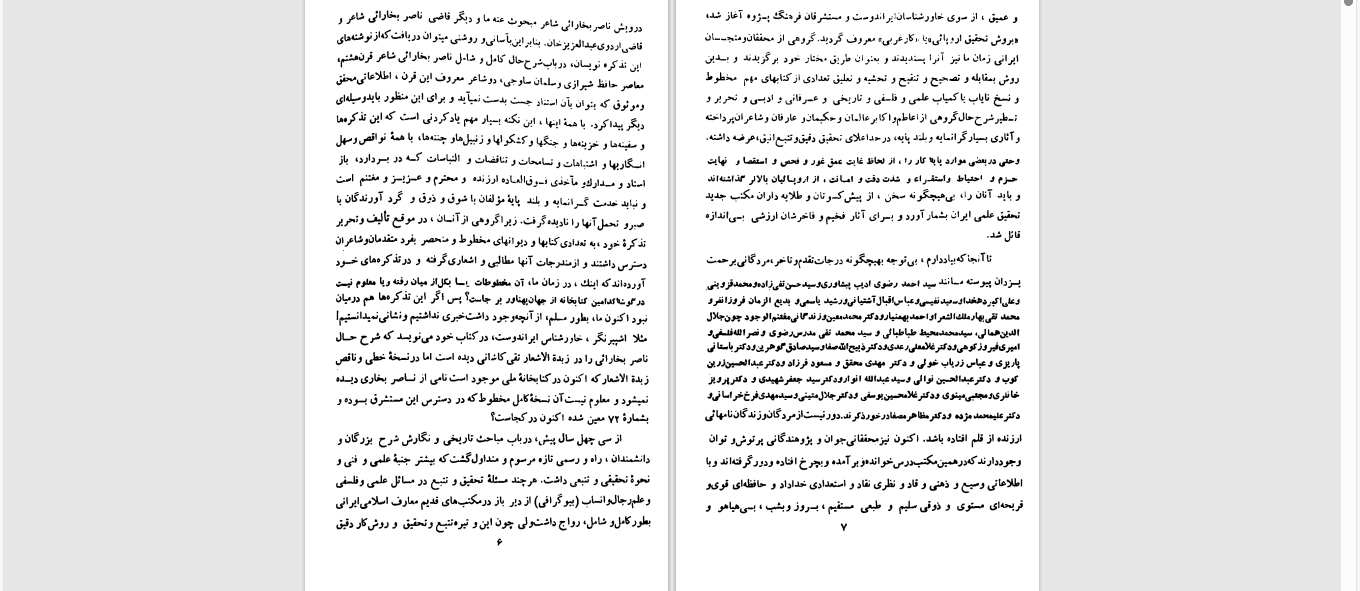 درویش ناصر بخارائی شاعر مبحوث عنه ما و دیگر قاضی ناصر بخارائی شاعر و
قاضی اردوی عبدالعزیزخان. بنابراین بآسانی و روشنی میتوان دریافت که از نوشته‌های
این تذکره نویسان، درباب شرح حال کامل و شامل ناصر بخارائی شاعر قرن هشتم،
معاصر حافظ شیرازی و سلمان ساوجی، دو شاعر معروف این قرن ، اطلاعاتی محقق
و موثوق که بتوان بآن استناد جست بدست نمیآید و برای این منظور باید وسیله‌ای
دیگر پیدا کرد. با همهٔ اینها ، این نکته بسیار مهم یادکردنی است که این تذکره‌ها
و سفینه‌ها و خزینه‌ها و جنگها و کشکولها و زنبیل‌ها و چنته‌ها، با همهٔ نواقص و سهل
انگاریها و اشتباهات و تسامحات و تناقضات و التباسات کـه در بـردارد، باز
اسناد و مـدارك و مآخذی فـوق‌العـاده ارزنده و محترم و عـزیـز و مغتنم است
و نباید خدمت گـرانمایه و بلند پایهٔ مؤلفان با شوق و ذوق و گرد آورندگان با
صبر و تحمل آنها را نادیده گرفت. زیرا گروهی از آنـان ، در موقـع تألیف و تحریر
تذکرهٔ خود ، به تعدادی کتابها و دیوانهای مخطوط و منحصر بفرد متقدمان و شاعران
دسترس داشتند و از مندرجات آنها مطالبی و اشعاری گرفته و در تذکره‌های خـود
آورده‌اند که اینك ، در زمان ما، آن مخطوطات یـا بکل از میان رفته و یا معلوم نیست
در گوشهٔ کدامین کتابخانه از جهان پهناور بر جاست؟ پس اگر این تذکره‌ها هم درمیان
نبود اکنون ما، بطور مسلم، از آنچه وجود داشت خبری نداشتیم و نشانی نمیدانستیم!
مثلا اشپیرنگر ، خاورشناس ایراندوست، در کتاب خود می‌نویسد که شرح حـال
ناصر بخارائی را در زبدة الأشعار تقی کاشانی دیده است اما در نسخهٔ خطی و ناقص
زبدة الأشعار که اکنون در کتابخانهٔ ملی موجود است نامی از نـاصر بخاری دیـده
نمیشود و معلوم نیست آن نسخهٔ کامل مخطوط که در دسترس این مستشرق بـوده و
بشمارهٔ ۷۲ معین شده اکنون در کجاست؟
از سی چهل سال پیش، درباب مباحث تاریخی و نگارش شرح بزرگان و
دانشمندان ، راه و رسمی تازه مرسوم و متداول گشت که بیشتر جنبهٔ علمی و فنی و
نحوهٔ تحقیقی و تتبعی داشت. هرچند مسئلهٔ تحقیق و تتبع در مسائل علمی و فلسفی
و علم رجال و انساب (بیوگرافی) از دیر باز در مکتب‌های قدیم معارف اسلامی ایرانی
بطور کامل و شامل، رواج داشت ولی چون این و تیره تتبع و تحقیق و روش کار دقیق
۶
و عمیق ، از سوی خاورشناسان ایراندوست و مستشرقان فرهنگ پـژوه آغاز شد،
«بروش تحقیق اروپائی» یا «کار غربی» معروف گردید. گروهی از محققان و متجسـان
ایرانی زمان ما نیز آنرا پسندیدند و بعنوان طریق مختار خود برگزیدند و بـدین
روش بمقابله و تصحیح و تنقیح و تحشیه و تعلیق تعدادی از کتابهای مهم مخطوط
و نسخ نایاب یا کمیاب علمی و فلسفی و تاریخی و عـرفانی و ادبـی و تحریر و
تـطیر شرح حال گروهی از اعاظم و اکابر عالمان و حکیمان و عارفان و شاعران پرداخته
و آثاری بسیار گرانمایه و بلند پایه، در حد اعلای تحقیق دقیق و تتبع انیق، عرضه داشته.
وحتی در بعضی موارد پایهٔ کار را ، از لحاظ غایت عمق غور و فحص و استقصا و نهایت
حـزم و احتیاط و استقـراء و شدت دقت و امـانت ، از اروپـائیان بالاتر گذاشته‌اند
و باید آنان را، بی‌هیچگونه سخن ، از پیش‌کسوتان و طلایه داران مکتب جدید
تحقیق علمی ایران بشمار آورد و بـرای آثار فخیم و فاخرشان ارزشی بـی‌اندازه
قائل شد.
تا آنجا که بیاد دارم ، بی‌توجه بهیچگونه درجات تقدم و تأخر، مردگانی برحمت
یـزدان پیوسته مـانند سید احمد رضوی ادیب پیشاوری و سید حسن تقی‌زاده و محمد قزوینی
و علی اکبر دهخدا و سعید نفیسی و عباس اقبال آشتیانی و رشید یاسمی و بدیع الزمان فروزانفر و
محمد تقی بهار ملك الشعرا و احمد بهمنیار و دکتر محمد معین و زندگانی مغتنم الوجود چون جلال
الدین همائی، سید محمد محیط طباطبائی و سید محمد تقی مدرس رضوی و نصرالله فلسفی و
امیری فیروزکوهی و دکتر غلامعلی رعدی و دکتر ذبیح‌الله صفا و سید صادق گوهرین و دکتر باستانی
پاریزی و عباس زریاب خوئی و دکتر مهدی محقق و مسعود فرزاد و دکتر عبدالحسین زرین
کوب و دکتر عبدالحسین نوائی و سید عبدالله انوار و دکتر سید جعفر شهیدی و دکتر پرویز
خانلری و مجتبی مینوی و دکتر غلامحسین یوسفی و دکتر جلال متینی و سید مهدی فرخ خراسانی و
دکتر علیمحمد مژده و دکتر مظاهر مصفا درخور ذکرند. دور نیست از مردگان و زندگان نامهائی
ارزنده از قلم افتاده باشد. اکنون نیز محققانی جوان و پژوهندگانی پرتوش و توان
وجود دارند که در همین مکتب درس خوانده و بر آمده و بچرخ افتاده و دور گرفته‌اند و با
اطلاعاتی وسیع و ذهنی وقاد و نظری نقاد و استعدادی خداداد و حافظه‌ای قوی و
قریحه‌ای مستوی و ذوقی سلیم و طبعی مستقیم ، بـروز و بشب ، بـی‌هیاهو و
۷